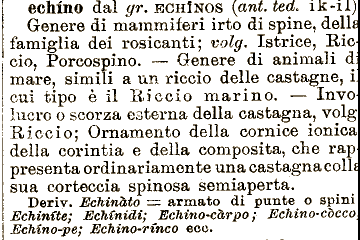 echíno dal gr. ECHÌNOS (ant. ted. ik-il)
Genere di mammiferi irto di spine, della
famiglia dei rosicanti; volg. Istrice, Ric-
cio, Porcospino. — Genere di animali di
mare, simili a un riccio delle castagne, i
cui tipo è il Riccio marino. — Invo-
lucro o scorza esterna della castagna, volg
Riccio; Ornamento della cornice ionica
della corintia e della composita, che rap-
presenta ordinariamente una castagna colla
sua corteccia spinosa semiaperta.
Deriv. Echinàto = armato di punte o spini
Echiníte; Echínidi; Echino-càrpo; Echino-còcco
Echíno-pe; Echino-rínco ecc.